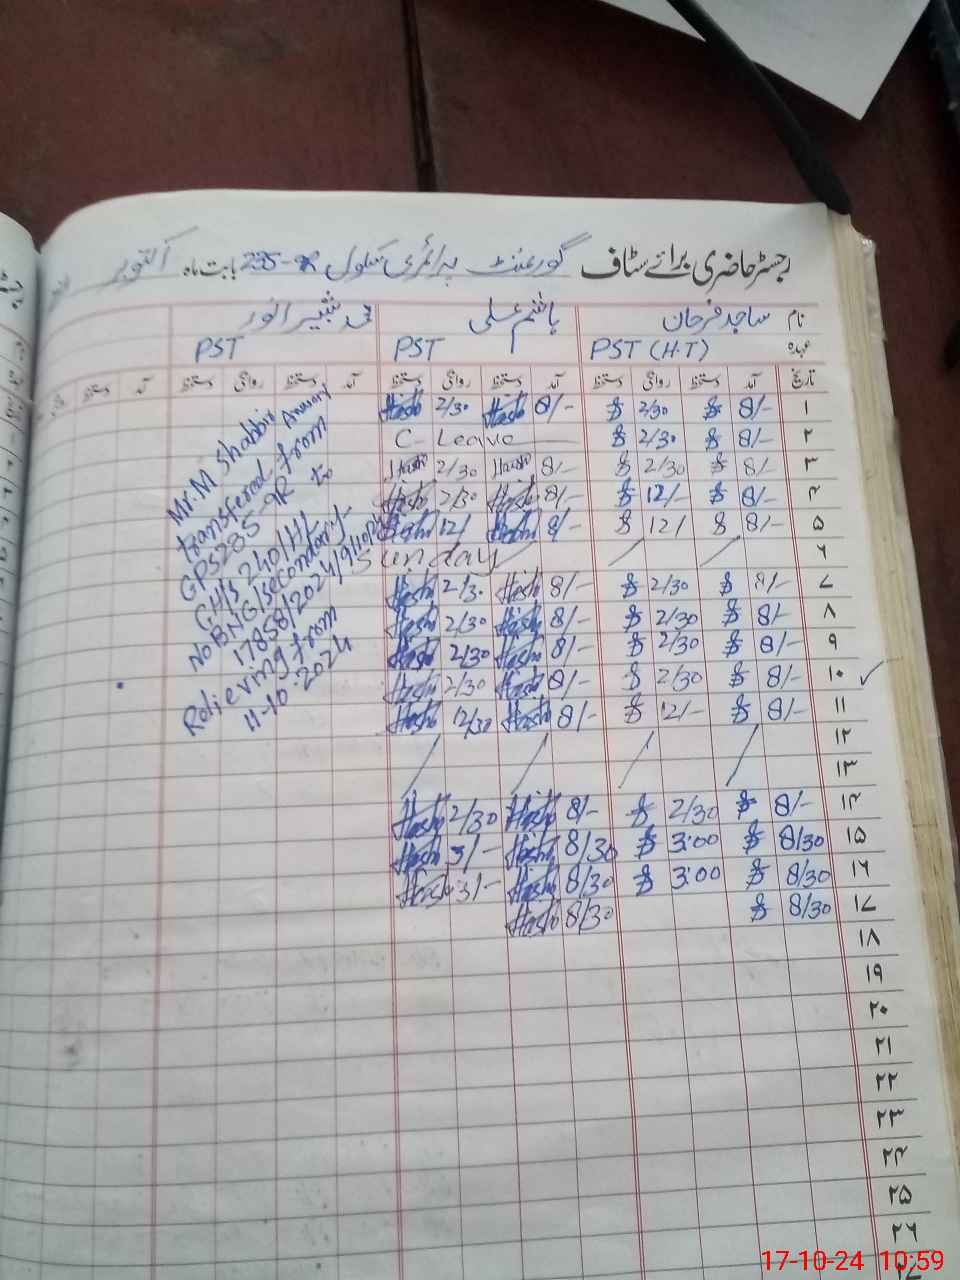 رجسٹر حاضری برائے سٹاف گورنمنٹ پرائمری سکول 285-9R بابت ماہ اکتوبر
نام ساجد فرحان ہاشم علی محمد شبیر انور
عہدہ PST (H.T) PST PST
تاریخ آمد دستخط روانگی دستخط آمد دستخط روانگی دستخط آمد دستخط روانگی دستخط آمد دستخط
۱ 8/- 2/30 8/- Hash 2/30 Hash
۲ 8/- 2/30 C-Leave
۳ 8/- 2/30 8/- Hash 2/30 Hash
۴ 8/- 12/- 8/- Hash 2/30 Hash
۵ 8/- 12/ 8/- Hash 12/ Hash
۶ Sunday
۷ 8/- 2/30 8/- Hash 2/30 Hash
۸ 8/- 2/30 8/- Hash 2/30 Hash
۹ 8/- 2/30 8/- Hash 2/30 Hash
۱۰ 8/- 2/30 8/- Hash 2/30 Hash
۱۱ 8/- 12/- 8/- Hash 12/30 Hash
۱۲
۱۳
۱۴ 8/- 2/30 8/- Hash 2/30 Hash
۱۵ 8/30 3:00 8/30 Hash 3/- Hash
۱۶ 8/30 3:00 8/30 Hash 3/- Hash
۱۷ 8/30 8/30 Hash
۱۸
۱۹
۲۰
۲۱
۲۲
۲۳
۲۴
۲۵
۲۶
۲۷
Mr. M Shabbir Anwar
transferred from
GPS 285-9R to
GHS 240/HL
No BNG/secondary-
17858/2024/9/10/024
Relieving from
11-10-2024
17-10-24 10:59